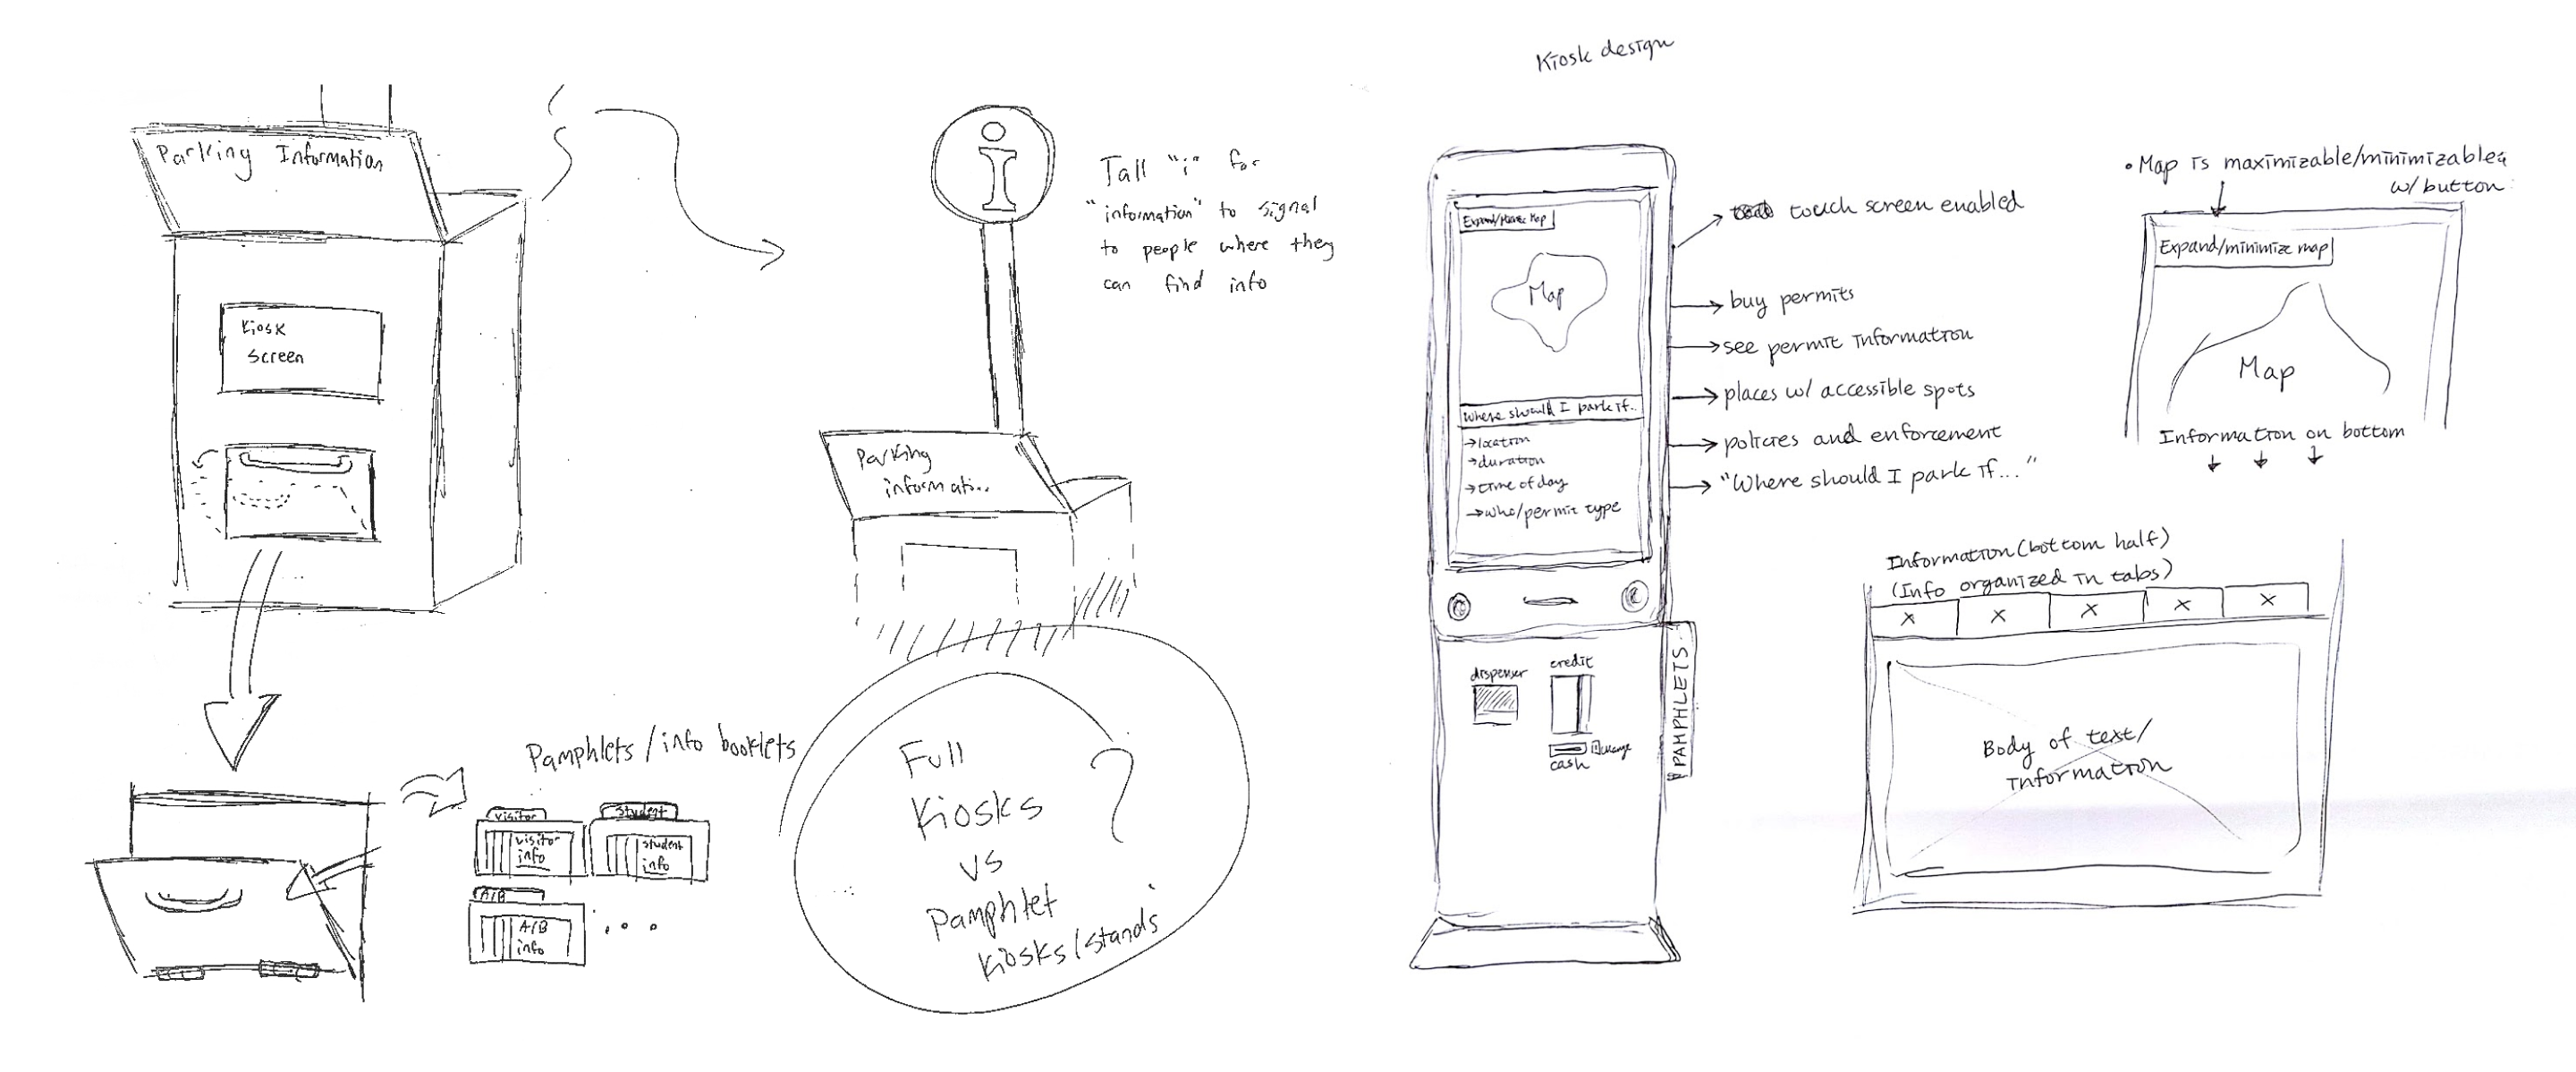 Kiosk design
Parking Information
Kiosk
Screen
Pamphlets/info booklets
visitor
visitor
info
student
student
info
A/B
A/B
info
i
Tall "i" for
"information" to signal
to people where they
can find info
Parking
informati..
Full
Kiosks
vs
Pamphlet
Kiosks/Stands
?
Map
Where should I park if..
→location
→duration
→time of day
→who/permit type
dispenser
credit
cash
PAMPHLETS
touch screen enabled
buy permits
see permit information
places w/ accessible spots
policies and enforcement
"Where should I park if..."
• Map is maximizable/minimizable
w/ button
Expand/minimize map
Map
Information on bottom
Information (bottom half)
(Info organized in tabs)
X X X X X
Body of text/
information